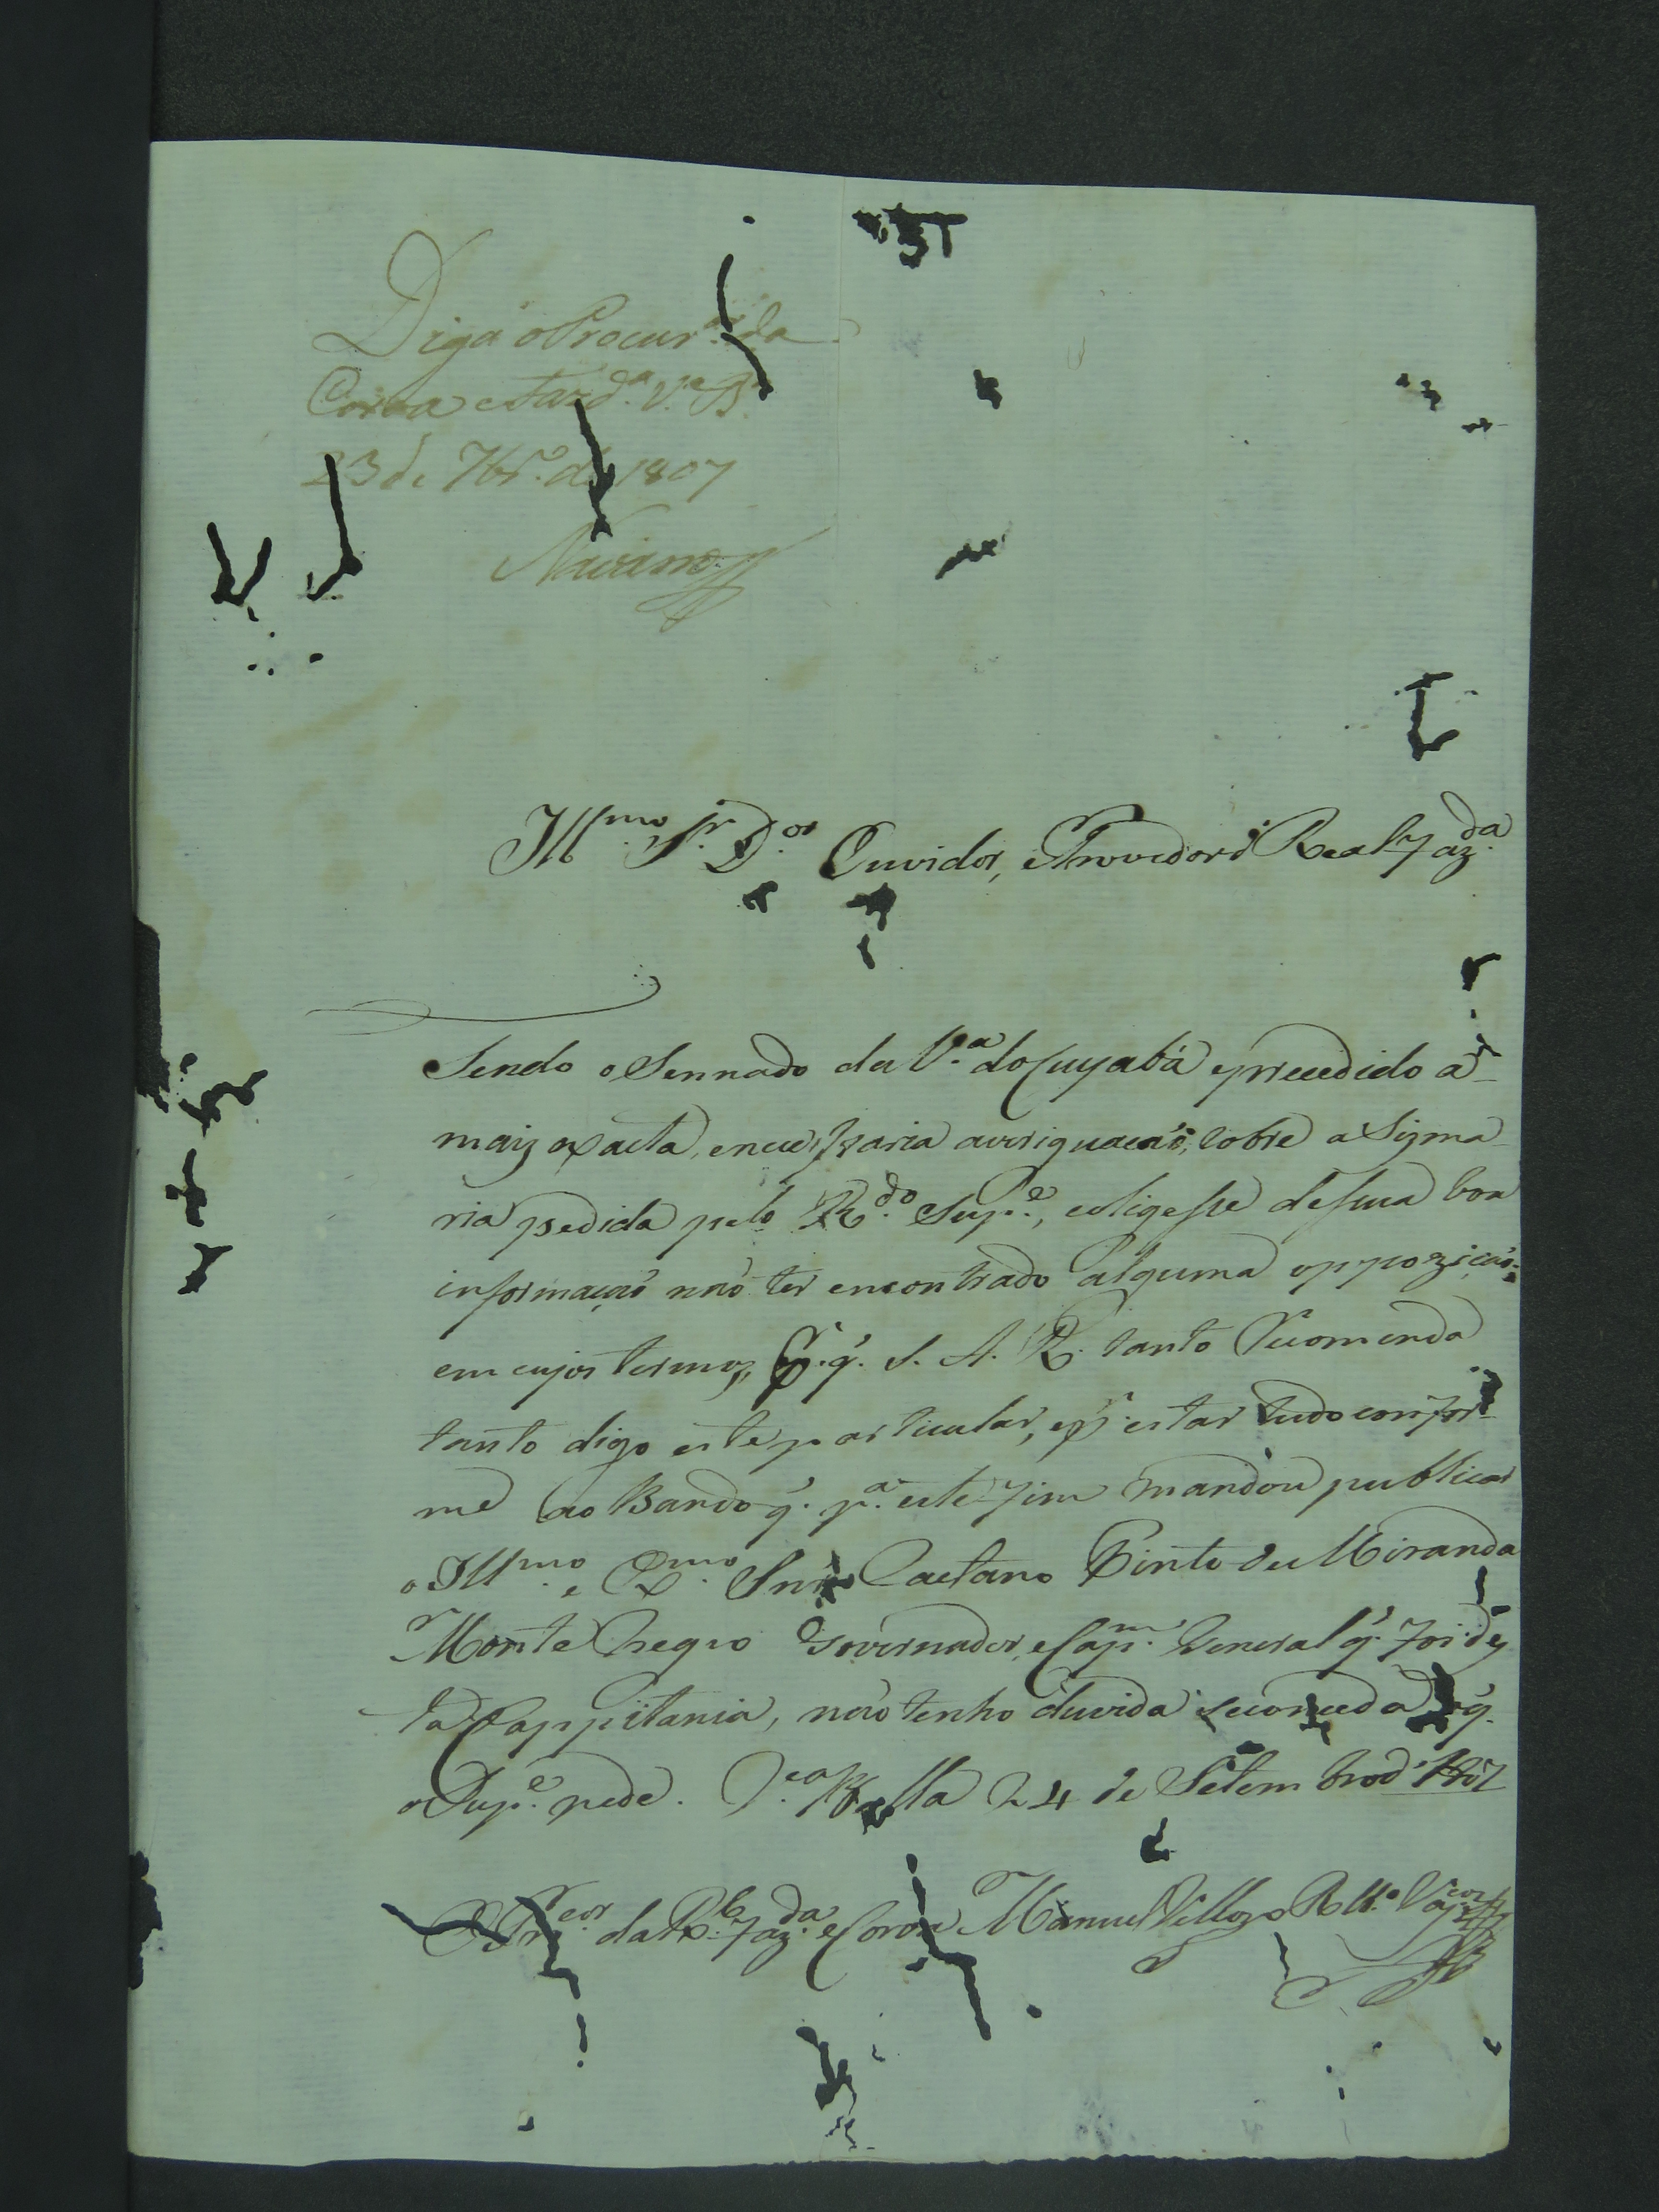 Diga o Procur.or da
Coroa e Fazd.a V.a B.a
23 de 7br.o de 1807
Navarro
Ill.mo Sr. D.or Ouvidor, e Provedor d' Real Faz.da
Sendo o Sennado da V.a do Cuyabá e precedido a
maiz exacta, e necessaria averiguaçaõ, sobre a Sizma
ria pedida pelo R.do Sup.e, e digesse de sua boa
informaçaõ naõ ter encontrado alguma oppoziçaõ:
em cujos termoz, p.r q'. S. A. R. tanto Recomenda
tanto digo este particular, e p.r estar tudo confor
me ao Bando q'. p.a este fim mandou publicar
o Ill.mo e Ex.mo Snr. Caetano Pinto de Miranda
Monte Negro Governador, e Cap.m General q'. foi dez
ta Cappitania, naõ tenho duvida se conceda o q'.
o Sup.e pede. V.a Bella 24 de Setembro d' 1807
O Pr.cor da R.l Faz.da e Coroa Manuel Vellozo